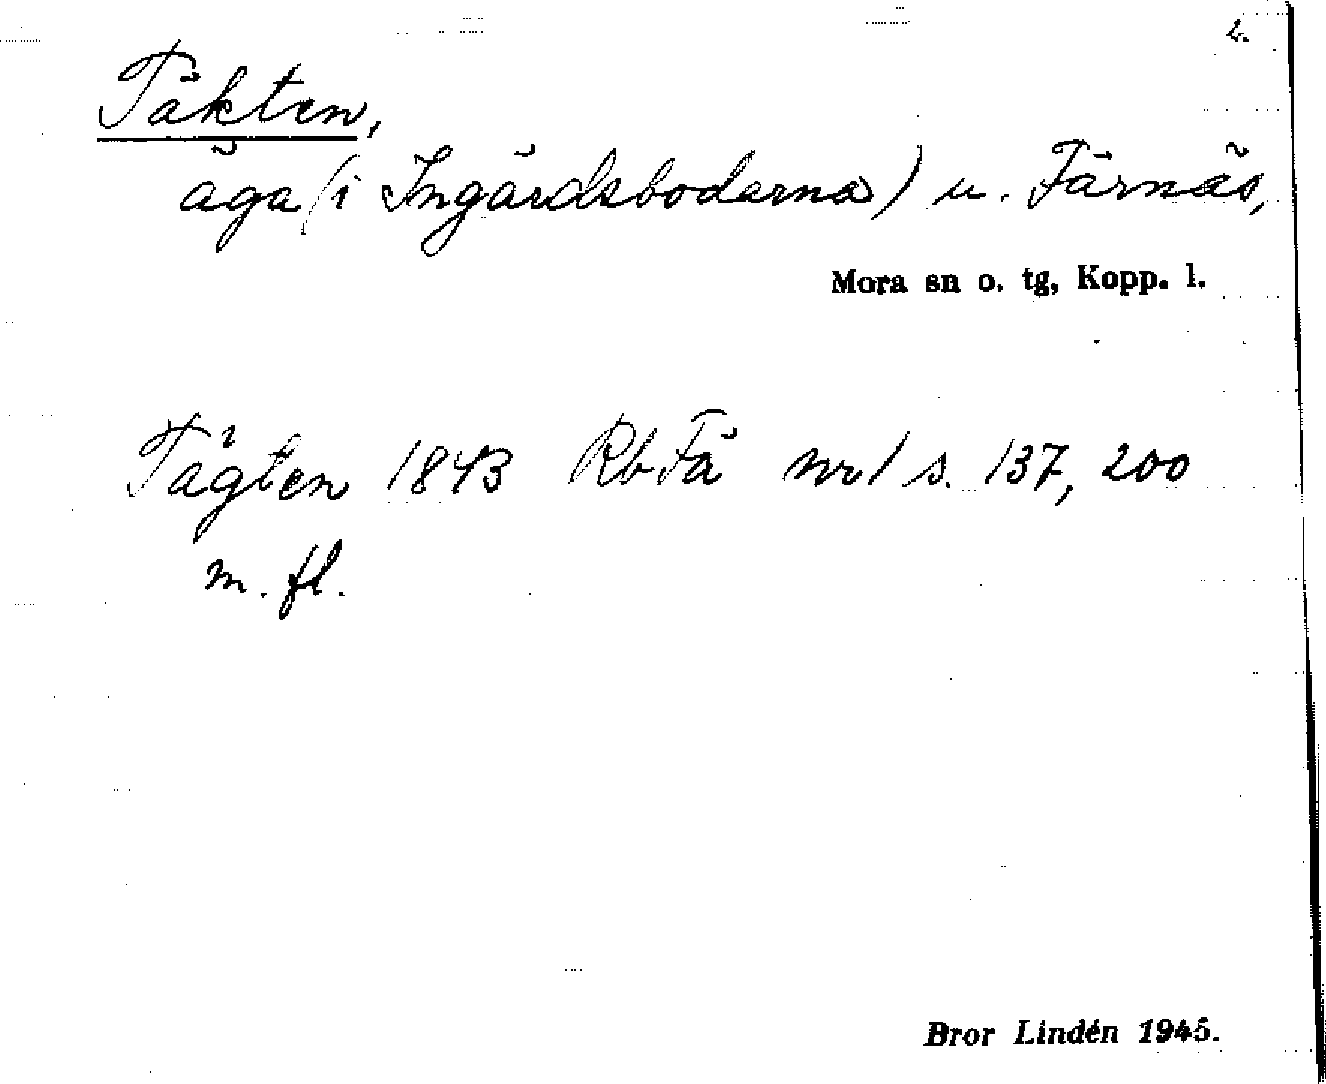 2.
Täkten,
äga (i Ingärdsbodarna) u. Färnäs,
Mora sn o. tg, Kopp. l.
Tägten 1843 Rb Fä nr 1 s. 137, 200
m. fl.
Bror Lindén 1945.